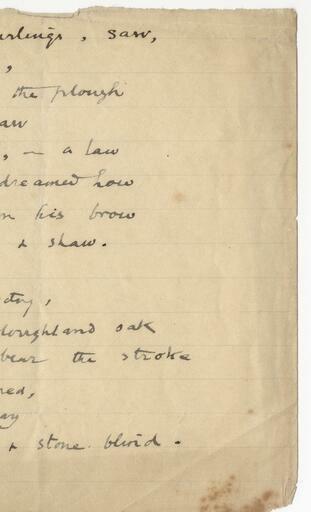 , saw,
,
the plough
aw
, – a law
dreamed how
his brow
+ shaw.
day,
ploughland oak
bear the stroke
red,
ay
+ stone blind.